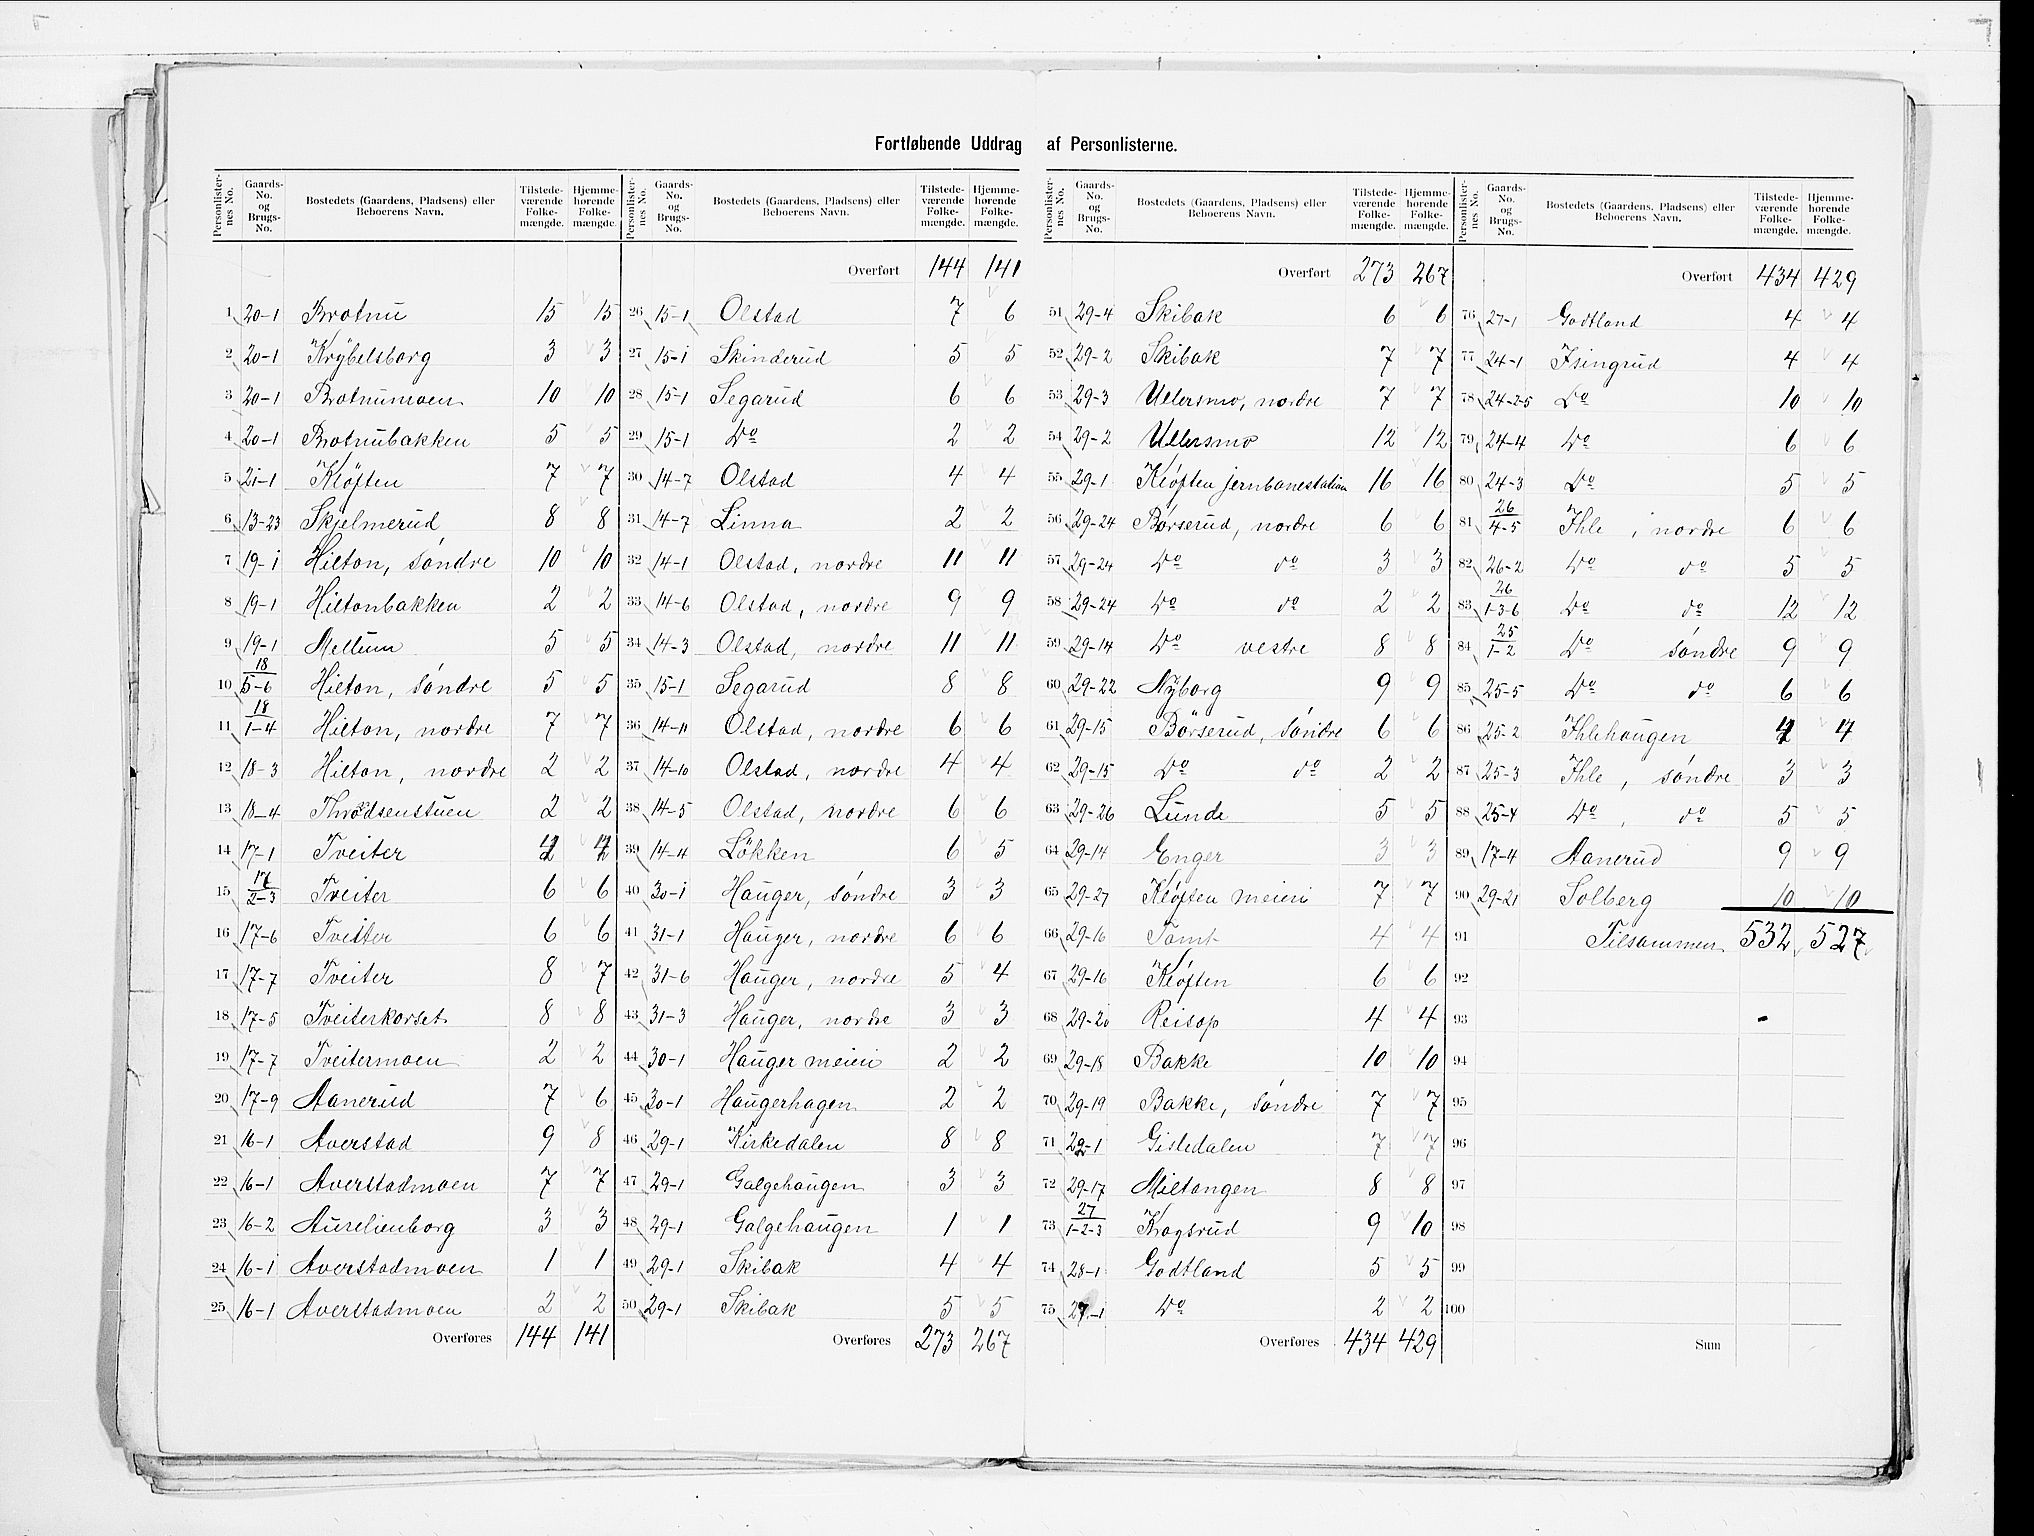 Fortløbende Uddrag af Personlisterne.
Personlister-nes No. | Gaards-No. og Brugs-No. | Bostedets (Gaardens, Pladsens) eller Beboerens Navn. | Tilstede-værende Folke-mængde. | Hjemme-hørende Folke-mængde.
1 20-1 Brotnu 15 15
2 20-1 Krybelsborg 3 3
3 20-1 Brotnumoen 10 10
4 20-1 Brotnubakken 5 5
5 21-1 Kløften 7 7
6 13-23 Skjelmerud 8 8
7 19-1 Hilton, søndre 10 10
8 19-1 Hiltonbakken 2 2
9 19-1 Mellum 5 5
10 18/5-6 Hilton, søndre 5 5
11 18/1-4 Hilton, nordre 7 7
12 18-3 Hilton, nordre 2 2
13 18-4 Throdsenstuen 2 2
14 17-1 Tveiter
15 17/2-3 Tveiter 6 6
16 17-6 Tveiter 6 6
17 17-7 Tveiter 8 7
18 17-5 Tveiterkorset 8 8
19 17-7 Tveitermoen 2 2
20 17-9 Aanerud 7 6
21 16-1 Averstad 9 8
22 16-1 Averstadmoen 7 7
23 16-2 Aurelienborg 3 3
24 16-1 Averstadmoen 1 1
25 16-1 Averstadmoen 2 2
Overføres 144 141
Personlister-nes No. | Gaards-No. og Brugs-No. | Bostedets (Gaardens, Pladsens) eller Beboerens Navn. | Tilstede-værende Folke-mængde. | Hjemme-hørende Folke-mængde.
Overført 144 141
26 15-1 Olstad 7 6
27 15-1 Skinderud 5 5
28 15-1 Segarud 6 6
29 15-1 Do 2 2
30 14-7 Olstad 4 4
31 14-7 Linna 2 2
32 14-1 Olstad, nordre 11 11
33 14-6 Olstad, nordre 9 9
34 14-3 Olstad, nordre 11 11
35 15-1 Segarud 8 8
36 14-11 Olstad, nordre 6 6
37 14-10 Olstad, nordre 4 4
38 14-5 Olstad, nordre 6 6
39 14-4 Løkken 6 5
40 30-1 Hauger, søndre 3 3
41 31-1 Hauger, nordre 6 6
42 31-6 Hauger, nordre 5 4
43 31-3 Hauger, nordre 3 3
44 30-1 Hauger meieri 2 2
45 30-1 Haugerhagen 2 2
46 29-1 Kirkedalen 8 8
47 29-1 Galgehaugen 3 3
48 29-1 Galgehaugen 1 1
49 29-1 Skibak 4 4
50 29-1 Skibak 5 5
Overføres 273 267
Personlister-nes No. | Gaards-No. og Brugs-No. | Bostedets (Gaardens, Pladsens) eller Beboerens Navn. | Tilstede-værende Folke-mængde. | Hjemme-hørende Folke-mængde.
Overført 273 267
51 29-4 Skibak 6 6
52 29-2 Skibak 7 7
53 29-3 Ullersmo, nordre 7 7
54 29-2 Ullersmo 12 12
55 29-1 Kløften jernbanestation 16 16
56 29-24 Børserud, nordre 6 6
57 29-24 Do do 3 3
58 29-24 Do do 2 2
59 29-14 Do vestre 8 8
60 29-22 Nyborg 9 9
61 29-15 Børserud, søndre 6 6
62 29-15 Do do 2 2
63 29-26 Lunde 5 5
64 29-14 Enger 3 3
65 29-27 Kløften meieri 7 7
66 29-16 Tomt 4 4
67 29-16 Kløften 6 6
68 29-20 Reisop 4 4
69 29-18 Bakke 10 10
70 29-19 Bakke, søndre 7 7
71 Gisledalen 7 7
72 29-17 Miltangen 8 8
73 27/1-2-3 Krogsrud 9 10
74 28-1 Godtland 5 5
75 27-1 Do 2 2
Overføres 434 429
Personlister-nes No. | Gaards-No. og Brugs-No. | Bostedets (Gaardens, Pladsens) eller Beboerens Navn. | Tilstede-værende Folke-mængde. | Hjemme-hørende Folke-mængde.
Overført 434 429
76 27-1 Godtland 4 4
77 24-1 Isingrud 4 4
78 24-2-5 Do 10 10
79 24-4 Do 6 6
80 24-3 Do 5 5
81 26/4-5 Ihle, nordre 6 6
82 26-2 Do do 5 5
83 26/1-3-6 Do do 12 12
84 25/1-2 Do søndre 9 9
85 25-5 Do do 6 6
86 25-2 Ihlehaugen 4 4
87 25-3 Ihle, søndre 3 3
88 25-4 Do, do 5 5
89 17-4 Aanerud 9 9
90 29-21 Solberg 10 10
91 Tilsammen 532 527
92
93
94
95
96
97
98
99
100
Sum